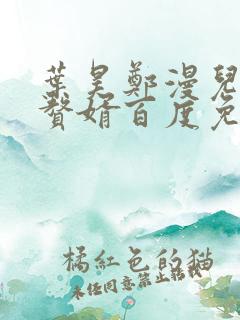 葉昊鄭漫兒
贅婿百度免
橘紅色的貓
未經同意禁止轉載